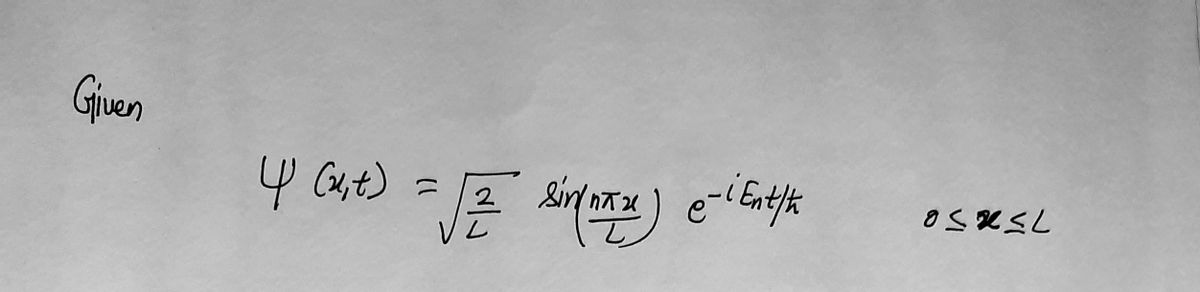 Given
ψ (x,t) = √(2/L) sin(nπx/L) e^(-iEnt/ħ) 0 ≤ x ≤ L